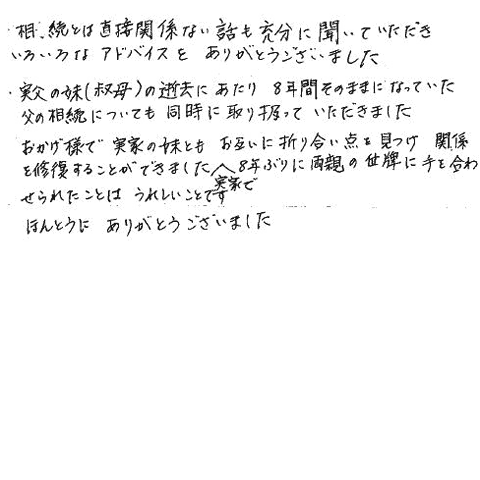 ・相続とは直接関係ない話も充分に聞いていただき
いろいろな アドバイスを ありがとうございました
・実父の妹(叔母)の逝去に あたり 8年間そのままになっていた
父の相続についても 同時に取り扱って いただきました
おかげ様で 実家の妹とも お互いに折り合い点を見つけ 関係
を修復することができました 8年ぶりに 実家で 両親の位牌に手を合わ
せられたことは うれしいことです
ほんとうに ありがとうございました